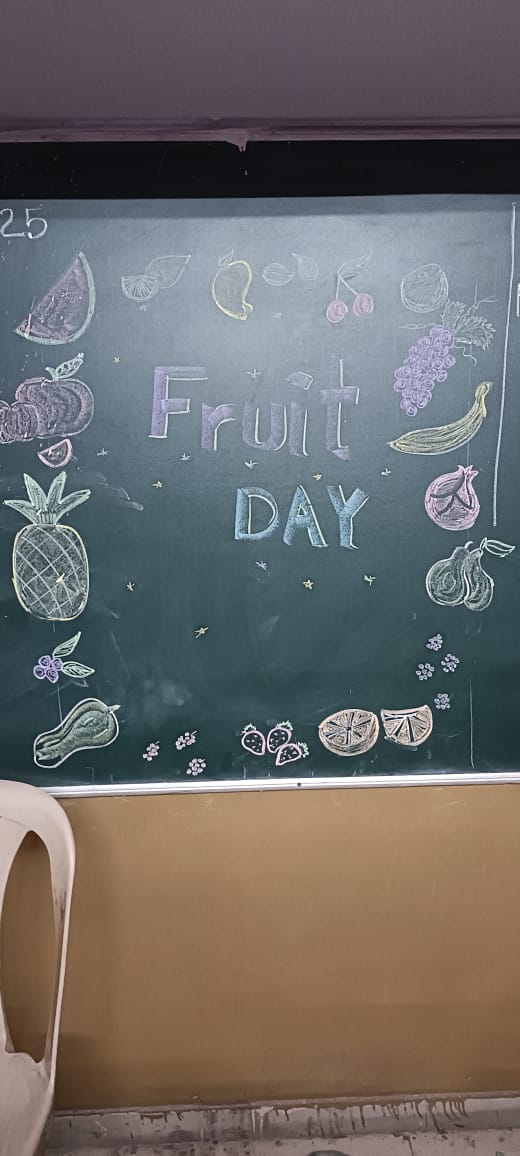 25
Fruit
DAY